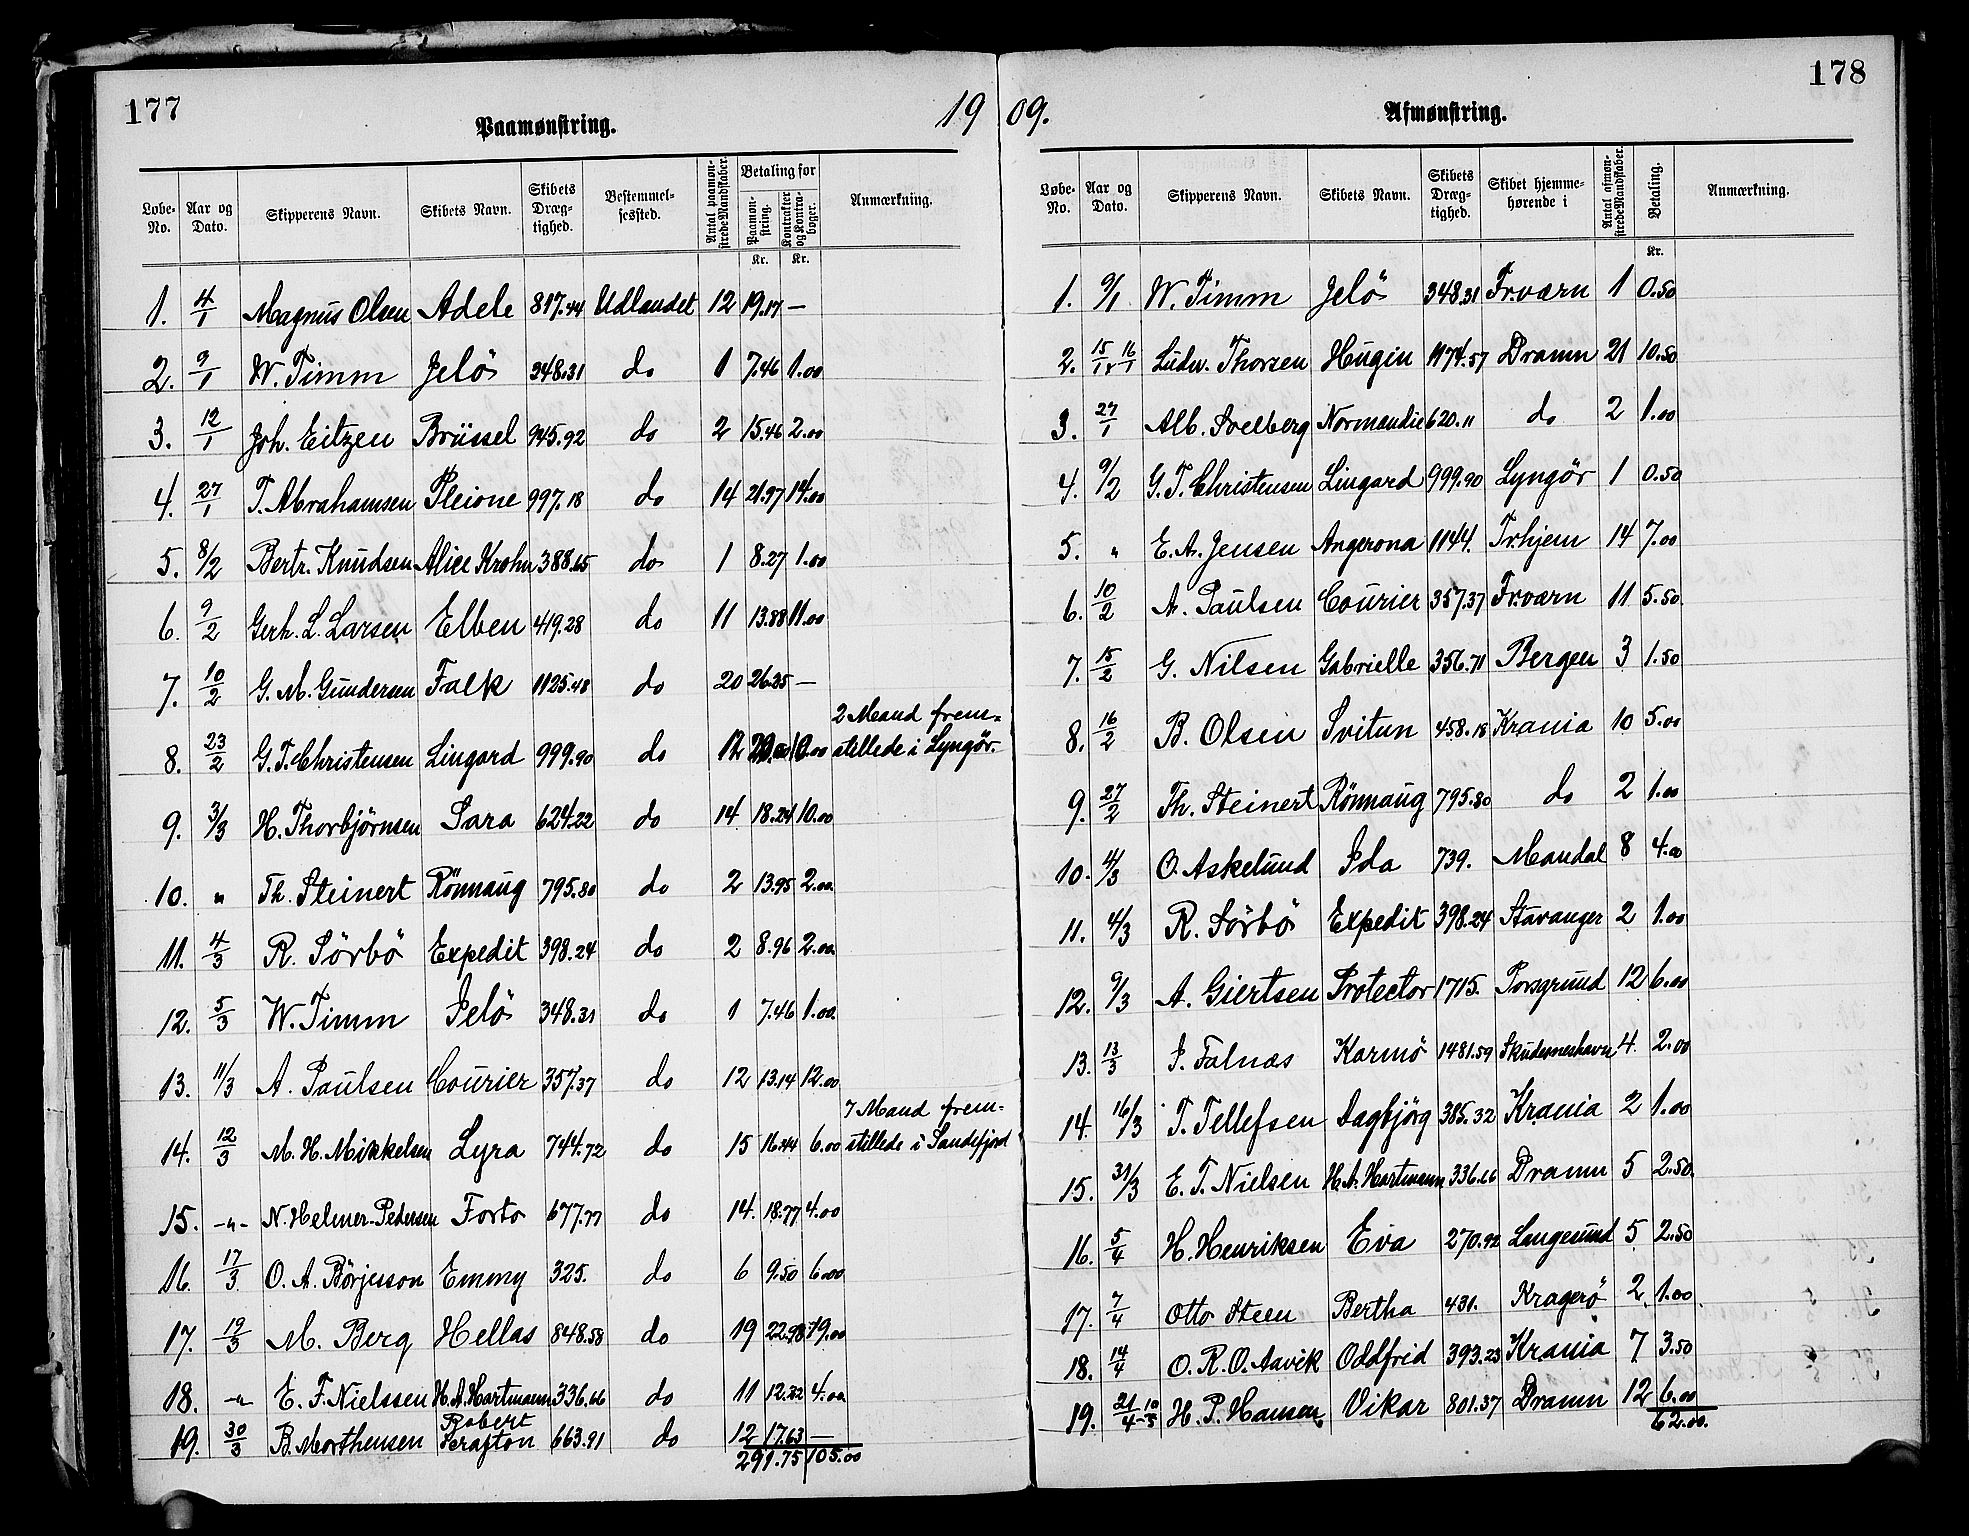 177
Paamønstring.
19
Løbe-No. Aar og Dato. Skipperens Navn. Skibets Navn. Skibets Dræg-tighed. Bestemmel-sessted. Antal paamøn-strede Mandskaber. Betaling for Paamøn-string. Kontrakter og Kontra-bøger. Anmærkning.
Kr. Kr.
1. 4/1 Magnus Olsen Adele 817.44 Udlandet 12 19.17 —
2. 9/1 W. Timm Jelö 348.31 do 1 7.46 1.00
3. 12/1 Joh. Eitzen Brüssel 945.92 do 2 15.46 2.00
4. 27/1 T. Abrahamsen Pleione 997.18 do 14 21.97 14.00
5. 8/2 Bertr. Knudsen Alice Krohn 388.65 do 1 8.27 1.00
6. 9/2 Gerh. L. Larsen Elben 419.28 do 11 13.88 11.00
7. 10/2 G. M. Gundersen Falk 1125.48 do 20 26.35 —
2 Mand frem-
8. 23/2 G. T. Christensen Lingard 999.90 do 12 10.00 stillede i Lyngör.
9. 3/3 H. Thorbjörnsen Sara 624.22 do 14 18.24 10.00
10. " Th. Steinert Rönnaug 795.80 do 2 13.95 2.00.
11. 4/3 R. Sörbö Expedit 398.24 do 2 8.96 2.00.
12. 5/3 W. Timm Jelö 348.31 do 1 7.46 1.00.
13. 11/3 A. Paulsen Courier 357.37 do 12 13.14 12.00
7 Mand frem-
14. 12/3 M. H. Mikkelsen Lyra 744.72 do 15 16.44 6.00 stillede i Sandefjord
15. -"- N. Helmer-Pedersen Forto 677.77 do 14. 18.77 4.00
16. 17/3 O. A. Börjesson Emmy 325. do 6 9.50 6.00
17. 19/3 M. Berg Hellas 848.58 do 19 22.98 19.00
18. -"- E. F. Nielssen H. A. Hartmann 336.66 do 11 12.22 4.00
19. 30/3 B. Morthensen Robert Scrafton 663.91 do 12 17.63 —
291.75 105.00
178
09.
Afmønstring.
Løbe-No. Aar og Dato. Skipperens Navn. Skibets Navn. Skibets Dræg-tighed. Skibet hjemme-hørende i Antal afmøn-strede Mandskaber. Betaling. Anmærkning.
Kr.
1. 9/1 W. Timm Jelö 348.31 Fr.værn 1 0.50
2. 15/1 & 16/1 Ludv. Thorsen Hugin 1174.57 Dramn 21 10.50
3. 27/1 Alb. Svelberg Normandie 620.11 do 2 1.00
4. 9/2 G. T. Christensen Lingard 999.90 Lyngör 1 0.50
5. " E. A. Jensen Angerona 1144. Tr.hjem 14 7.00
6. 10/2 A. Paulsen Courier 357.37 Fr.værn 11 5.50
7. 15/2 G. Nilsen Gabrielle 356.71 Bergen 3 1.50
8. 16/2 B. Olsen Svitun 458.18 Krania 10 5.00
9. 27/2 Th. Steinert Rönnaug 795.80 do 2 1.00
10. 4/3 O. Askelund Ida 739. Mandal 8 4.00
11. 4/3 R. Sörbö Expedit 398.24 Stavanger 2 1.00
12. 9/3 A. Giertsen Protector 1715. Porsgrund 12 6.00
13. 13/3 I. Falnæs Karmö 1481.59 Skudesneshavn 4 2.00
14. 16/3 T. Tellefsen Dagbjörg 385.32 Krania 2 1.00
15. 31/3 E. F. Nielsen H. A. Hartmann 336.66 Dramn 5 2.50
16. 5/4 H. Henriksen Eva 270.92 Langesund 5 2.50
17. 7/4 Otto Steen Bertha 431. Kragerö 2 1.00
18. 14/4 O. R. O. Aavik Oddfrid 393.23 Krania 7 3.50
19. 21/4-10/5 H. P. Hansen Vikar 801.37 Dramn 12 6.00
62.00.